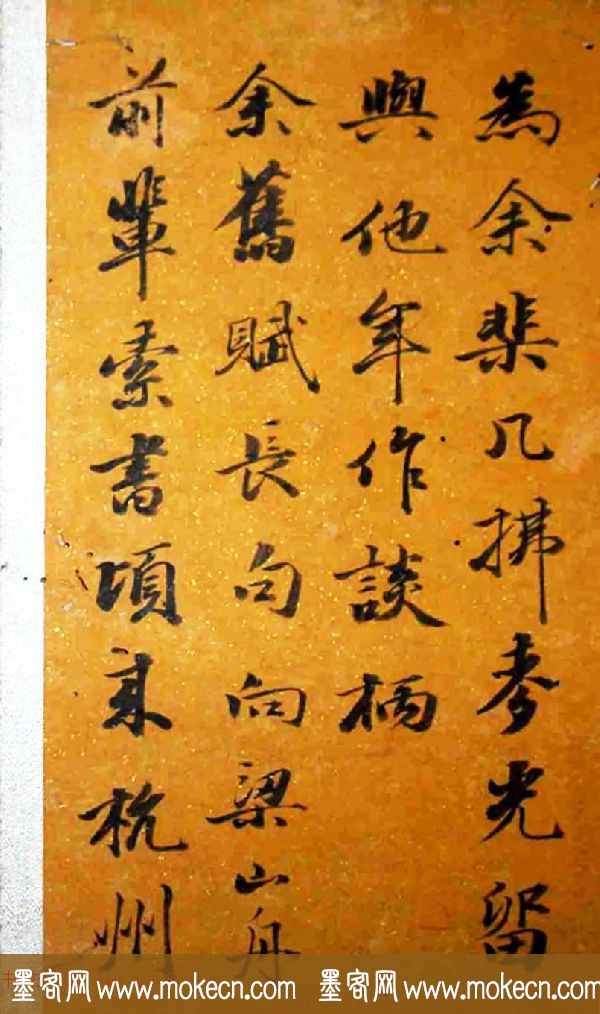 為余棐几拂麥光留
與他年作談柄
余舊賦長句向梁山舟
前輩索書頃來杭州
墨客网 www.mokecn.com 墨客网 www.mokecn.com